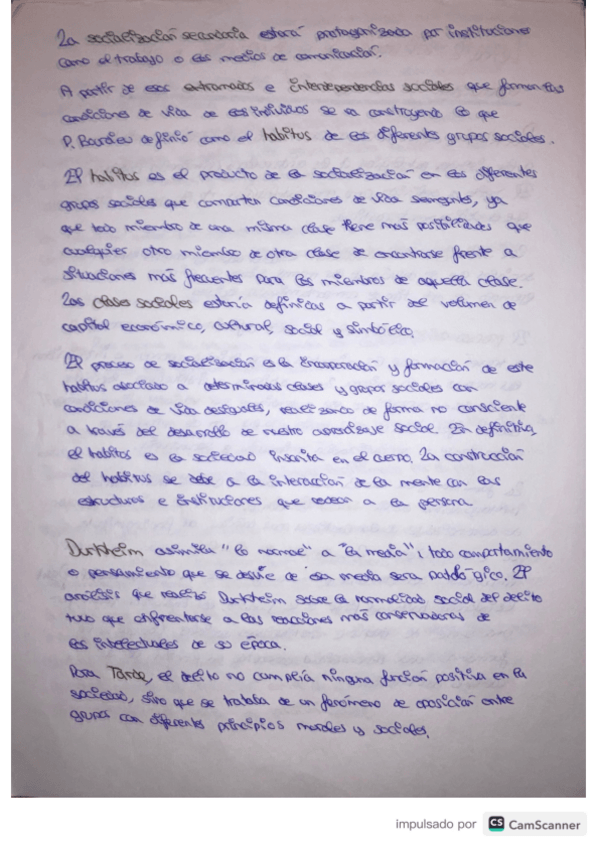 La socialización secundaria estará protagonizada por instituciones
como el trabajo o los medios de comunicación.
A partir de esos entramados e interdependencias sociales que forman las
condiciones de vida de los individuos se va construyendo lo que
P. Bordieu definió como el habitus de los diferentes grupos sociales.
El habitus es el producto de la socialización en los diferentes
grupos sociales que comparten condiciones de vida semejantes, ya
que todo miembro de una misma clase tiene más posibilidades que
cualquier otro miembro de otra clase de encontrarse frente a
situaciones más frecuentes para los miembros de aquella clase.
Las clases sociales estaría definidas a partir del volumen de
capital económico, cultural social y simbólico.
El proceso de socialización es la incorporación y formación de este
habitus asociado a determinadas clases y grupos sociales con
condiciones de vida desiguales, realizando de forma no consciente
a través del desarrollo de nuestro aprendizaje social. En definitiva,
el habitus es la sociedad inscrita en el cuerpo. La construcción
del habitus se debe a la interacción de la mente con las
estructuras e instituciones que rodean a la persona.
Durkheim asimila "lo normal" a "la media"; todo comportamiento
o pensamiento que se desvíe de esa media sera patológico. El
análisis que realizó Durkheim sobre la normalidad social del delito
tuvo que enfrentarse a las reacciones más conservadoras de
los intelectuales de su época.
Para Tarde, el delito no cumplía ninguna función positiva en la
sociedad, sino que se trataba de un fenómeno de oposición entre
grupos con diferentes principios morales y sociales.
impulsado por CS CamScanner